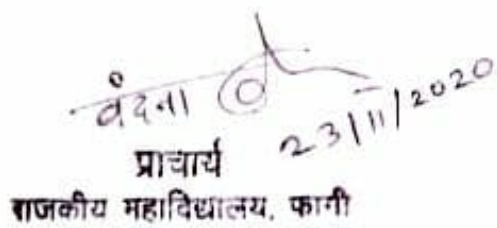 वंदना
23/11/2020
प्राचार्य
राजकीय महाविद्यालय, फागी